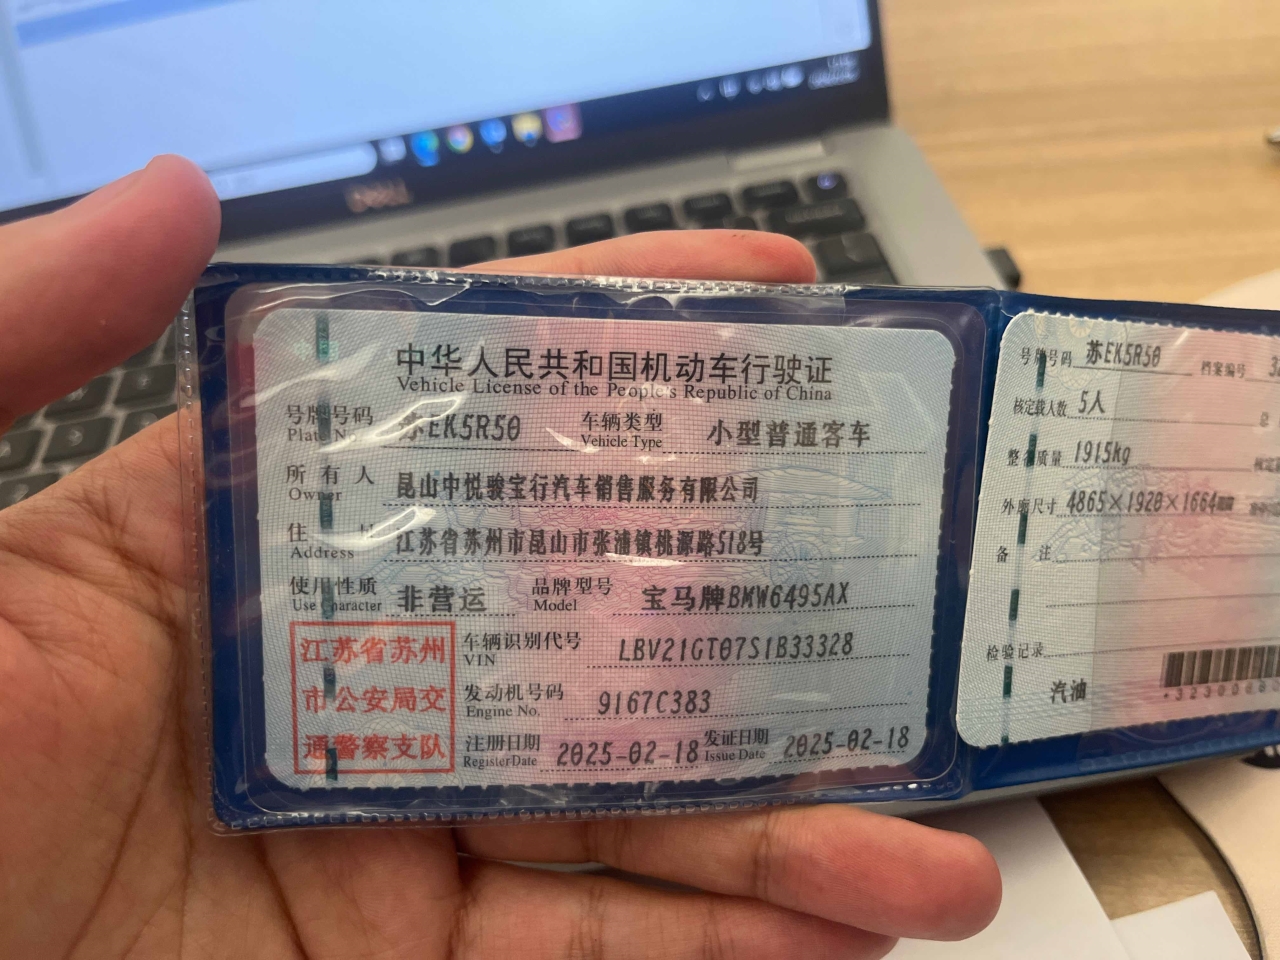 DELL
中华人民共和国机动车行驶证
Vehicle License of the People's Republic of China
号牌号码 苏EK5R50 车辆类型 小型普通客车
Plate No. Vehicle Type
所有人 昆山中悦骏宝行汽车销售服务有限公司
Owner
住 址 江苏省苏州市昆山市张浦镇桃源路518号
Address
使用性质 非营运 品牌型号 宝马牌BMW6495AX
Use Character Model
江苏省苏州
市公安局交
通警察支队
车辆识别代号 LBV21GT07S1B33328
VIN
发动机号码 9167C383
Engine No.
注册日期 2025-02-18 发证日期 2025-02-18
Register Date Issue Date
号牌号码 苏EK5R50 档案编号
核定载人数 5人
整备质量 1915kg
外廓尺寸 4865×1920×1664mm
备 注
检验记录
汽油